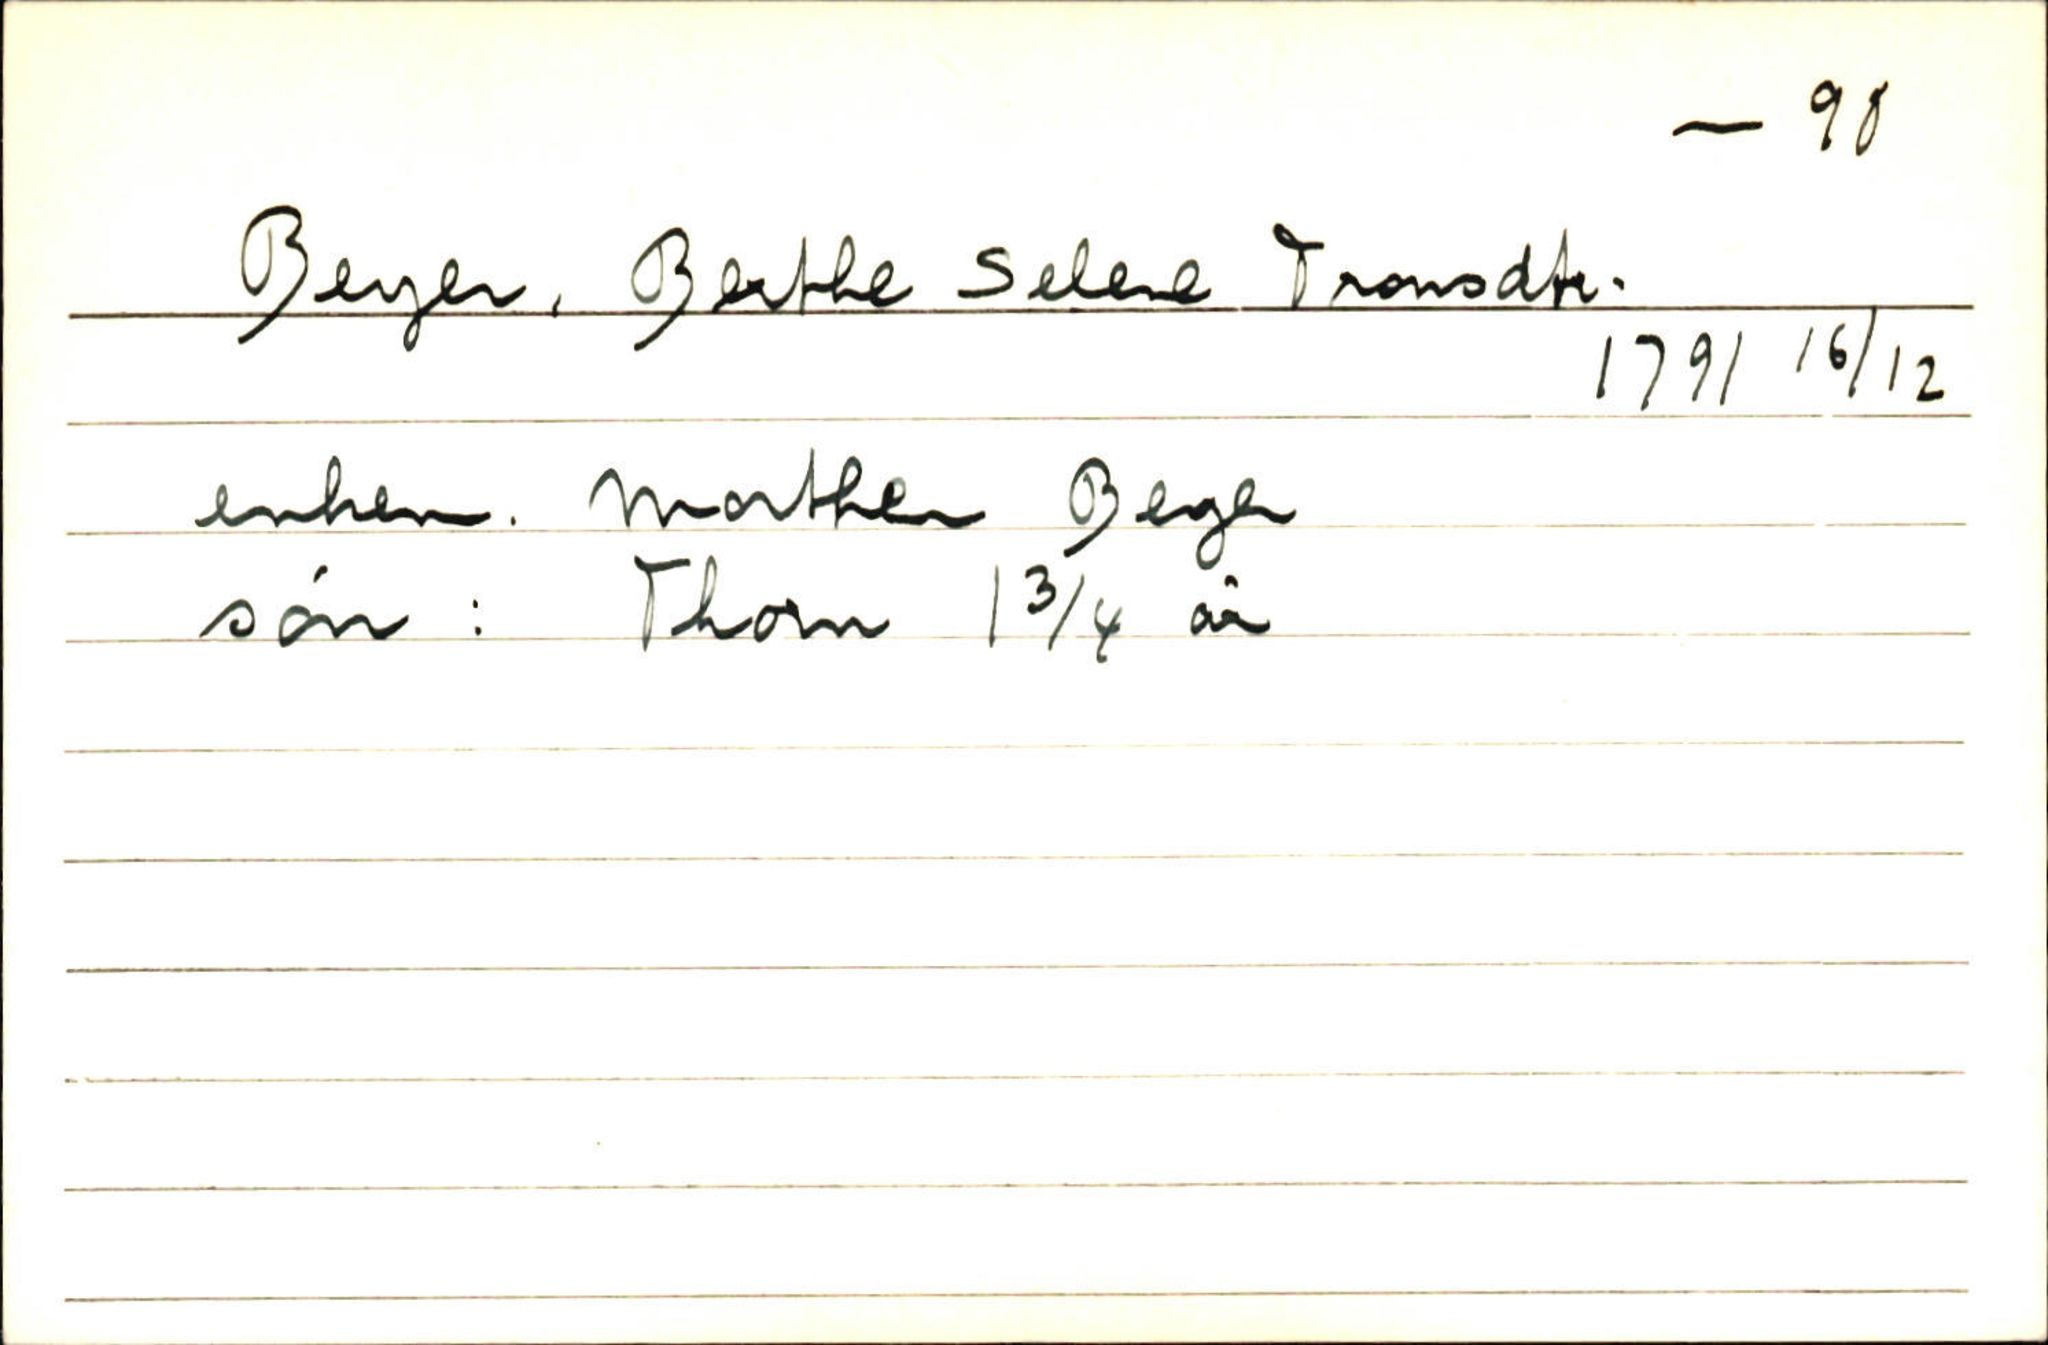 — 98
Beyer, Berthe Selene Tronsdtr.
1791 16/12
enkem. Morthen Beyer
søn : Thom 1 3/4 år